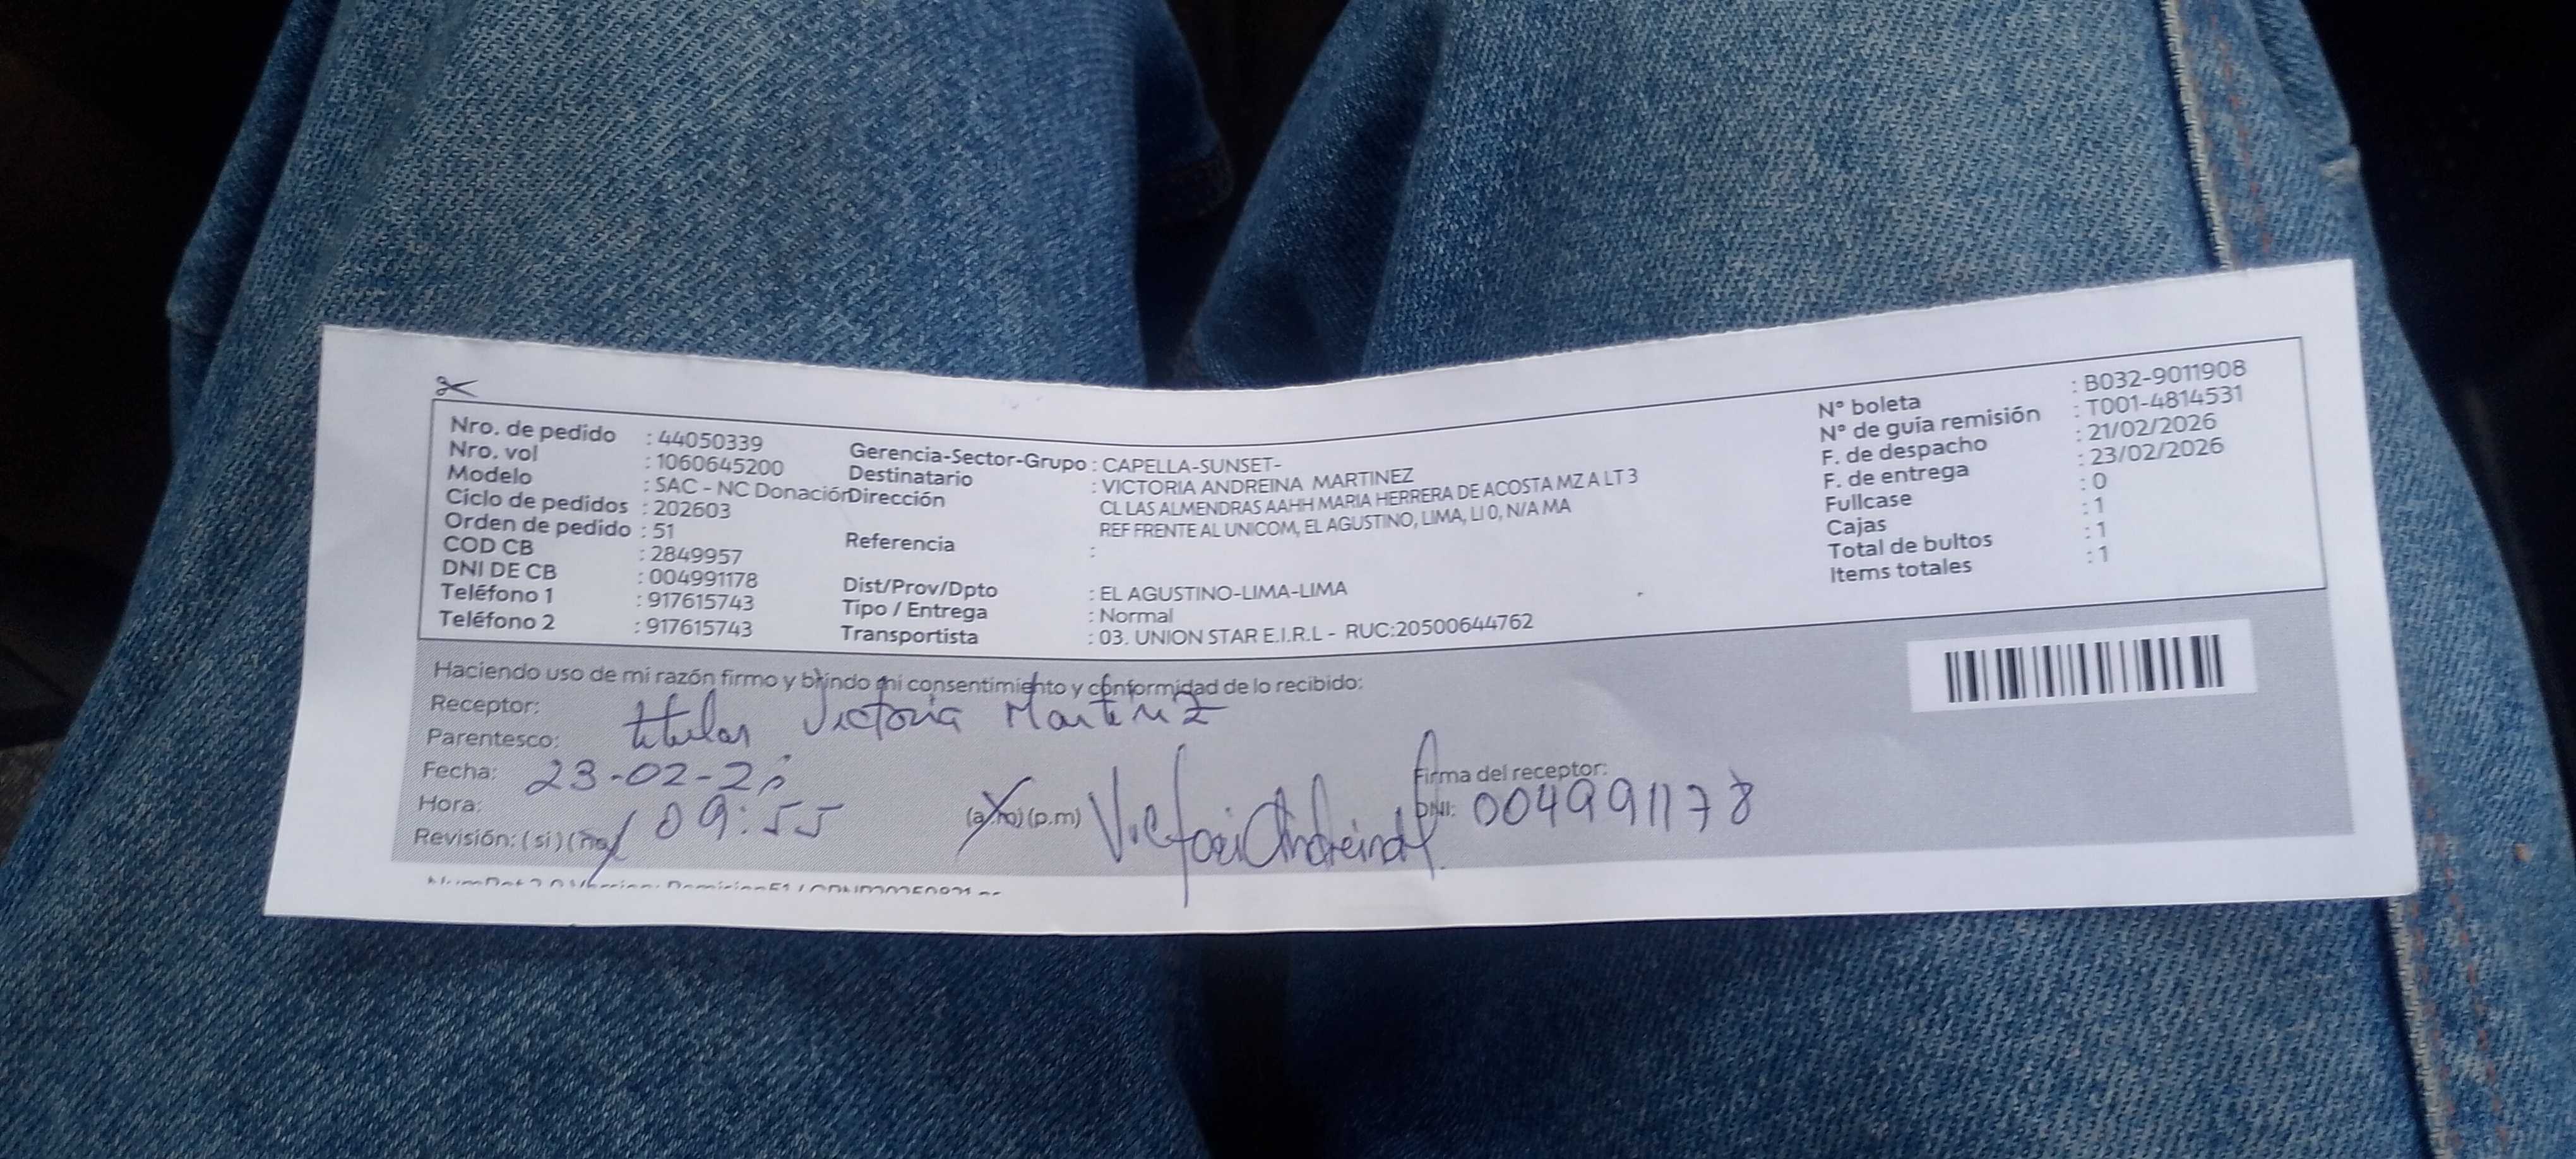 Nro. de pedido : 44050339
Nro. vol : 1060645200
Modelo : SAC - NC Donación
Ciclo de pedidos : 202603
Orden de pedido : 51
COD CB : 2849957
DNI DE CB : 004991178
Teléfono 1 : 917615743
Teléfono 2 : 917615743
Gerencia-Sector-Grupo : CAPELLA-SUNSET-
Destinatario : VICTORIA ANDREINA MARTINEZ
Dirección CL LAS ALMENDRAS AAHH MARIA HERRERA DE ACOSTA MZ A LT 3
REF FRENTE AL UNICOM, EL AGUSTINO, LIMA, LI 0, N/A MA
Referencia :
Dist/Prov/Dpto : EL AGUSTINO-LIMA-LIMA
Tipo / Entrega : Normal
Transportista : 03. UNION STAR E.I.R.L - RUC:20500644762
N° boleta : B032-9011908
N° de guía remisión : T001-4814531
F. de despacho : 21/02/2026
F. de entrega : 23/02/2026
Fullcase : 0
Cajas : 1
Total de bultos : 1
Items totales : 1
Haciendo uso de mi razón firmo y brindo mi consentimiento y conformidad de lo recibido:
Receptor: titular Victoria Martinez
Parentesco:
Fecha: 23-02-26
Hora: 09:55 (a.m) (p.m)
Revisión: (si) (no)
Firma del receptor:
DNI: 004991178